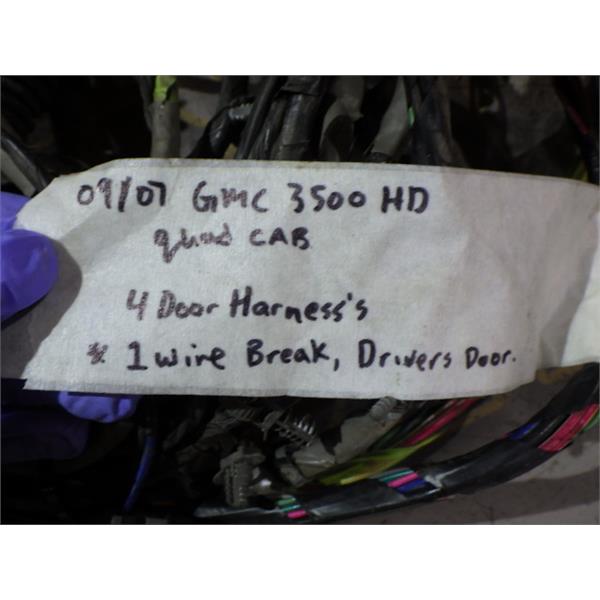 09/07 GMC 3500 HD
quad CAB
4 Door Harness's
* 1 wire Break, Drivers Door.